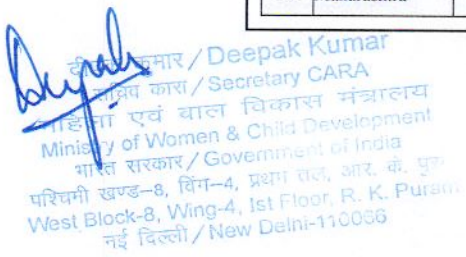 Maharashtra
Deepak
दीपक कुमार / Deepak Kumar
सचिव कारा / Secretary CARA
महिला एवं बाल विकास मंत्रालय
Ministry of Women & Child Development
भारत सरकार / Government of India
पश्चिमी खण्ड-8, विंग-4, प्रथम तल, आर. के. पुरम
West Block-8, Wing-4, Ist Floor, R. K. Puram
नई दिल्ली / New Delhi-110066